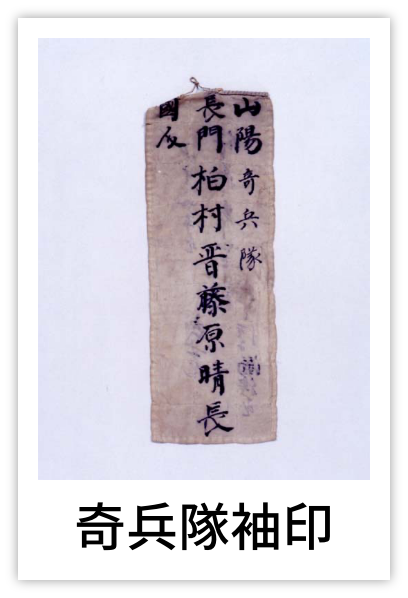 山陽奇兵隊
長門柏村晋藤原晴長
國
奇兵隊袖印